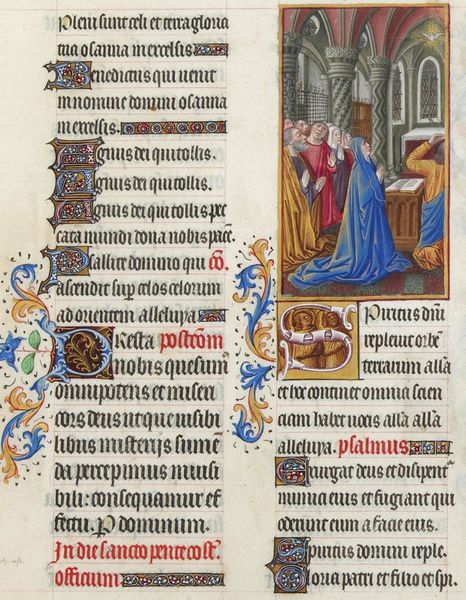 Pleni sunt celi et terra gloria
tua osanna in excelsis
Benedictus qui uenit
in nomine domini osanna
in excelsis.
Agnus dei qui tollis.
Agnus dei qui tollis.
Agnus dei qui tollis pec
cata mundi dona nobis pacē.
Psallite domino qui cō.
ascendit sup celos celorum
ad orientem alleluya.
Presta postcom
nobis quesum
omnipotens et miseri
cors deus ut que uisibi
libus misterijs sumē
da percepimus inuisi
bili: consequamur ef
fectu. P dominum.
In die sancto penthecost.
officium
Spiritus dnī
repleuit orbē
terrarum alla
et hoc continet omnia scien
ciam habet uocis alla alla
alleluya. psalmus
Exurgat deus et dissipent
inimici eius et fugiant qui
oderunt eum a facie eius.
Spiritus domini reple.
Gloria patri et filio et spi.